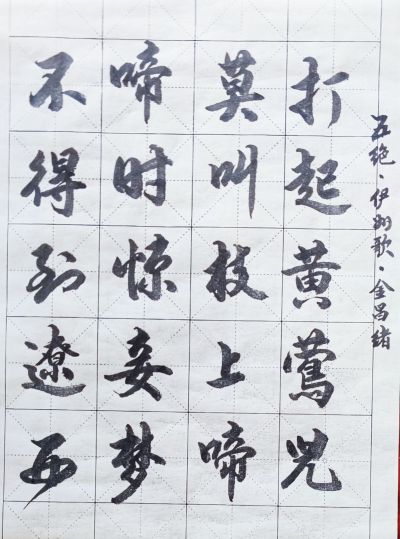 五绝·伊州歌·金昌绪
打起黄莺儿
莫叫枝上啼
啼时惊妾梦
不得到辽西